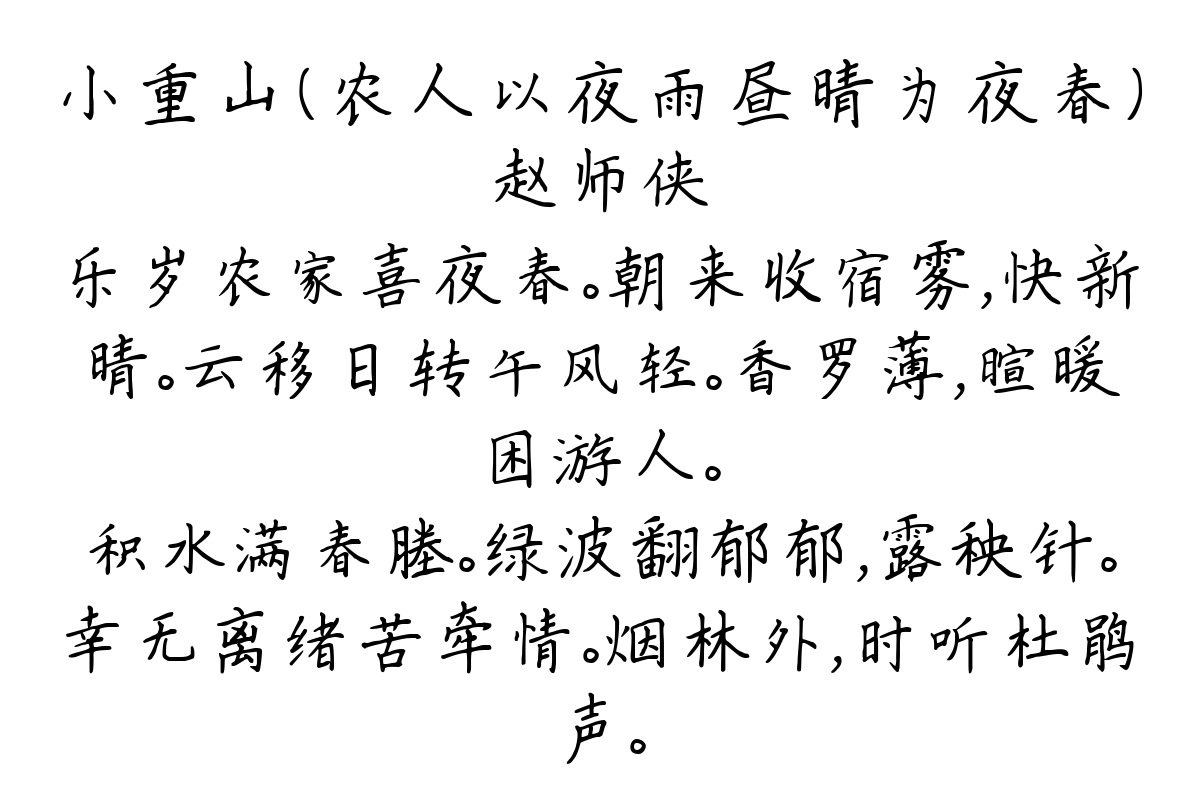 小重山(农人以夜雨昼晴为夜春)
赵师侠
乐岁农家喜夜春。朝来收宿雾,快新
晴。云移日转午风轻。香罗薄,暄暖
困游人。
积水满春塍。绿波翻郁郁,露秧针。
幸无离绪苦牵情。烟林外,时听杜鹃
声。